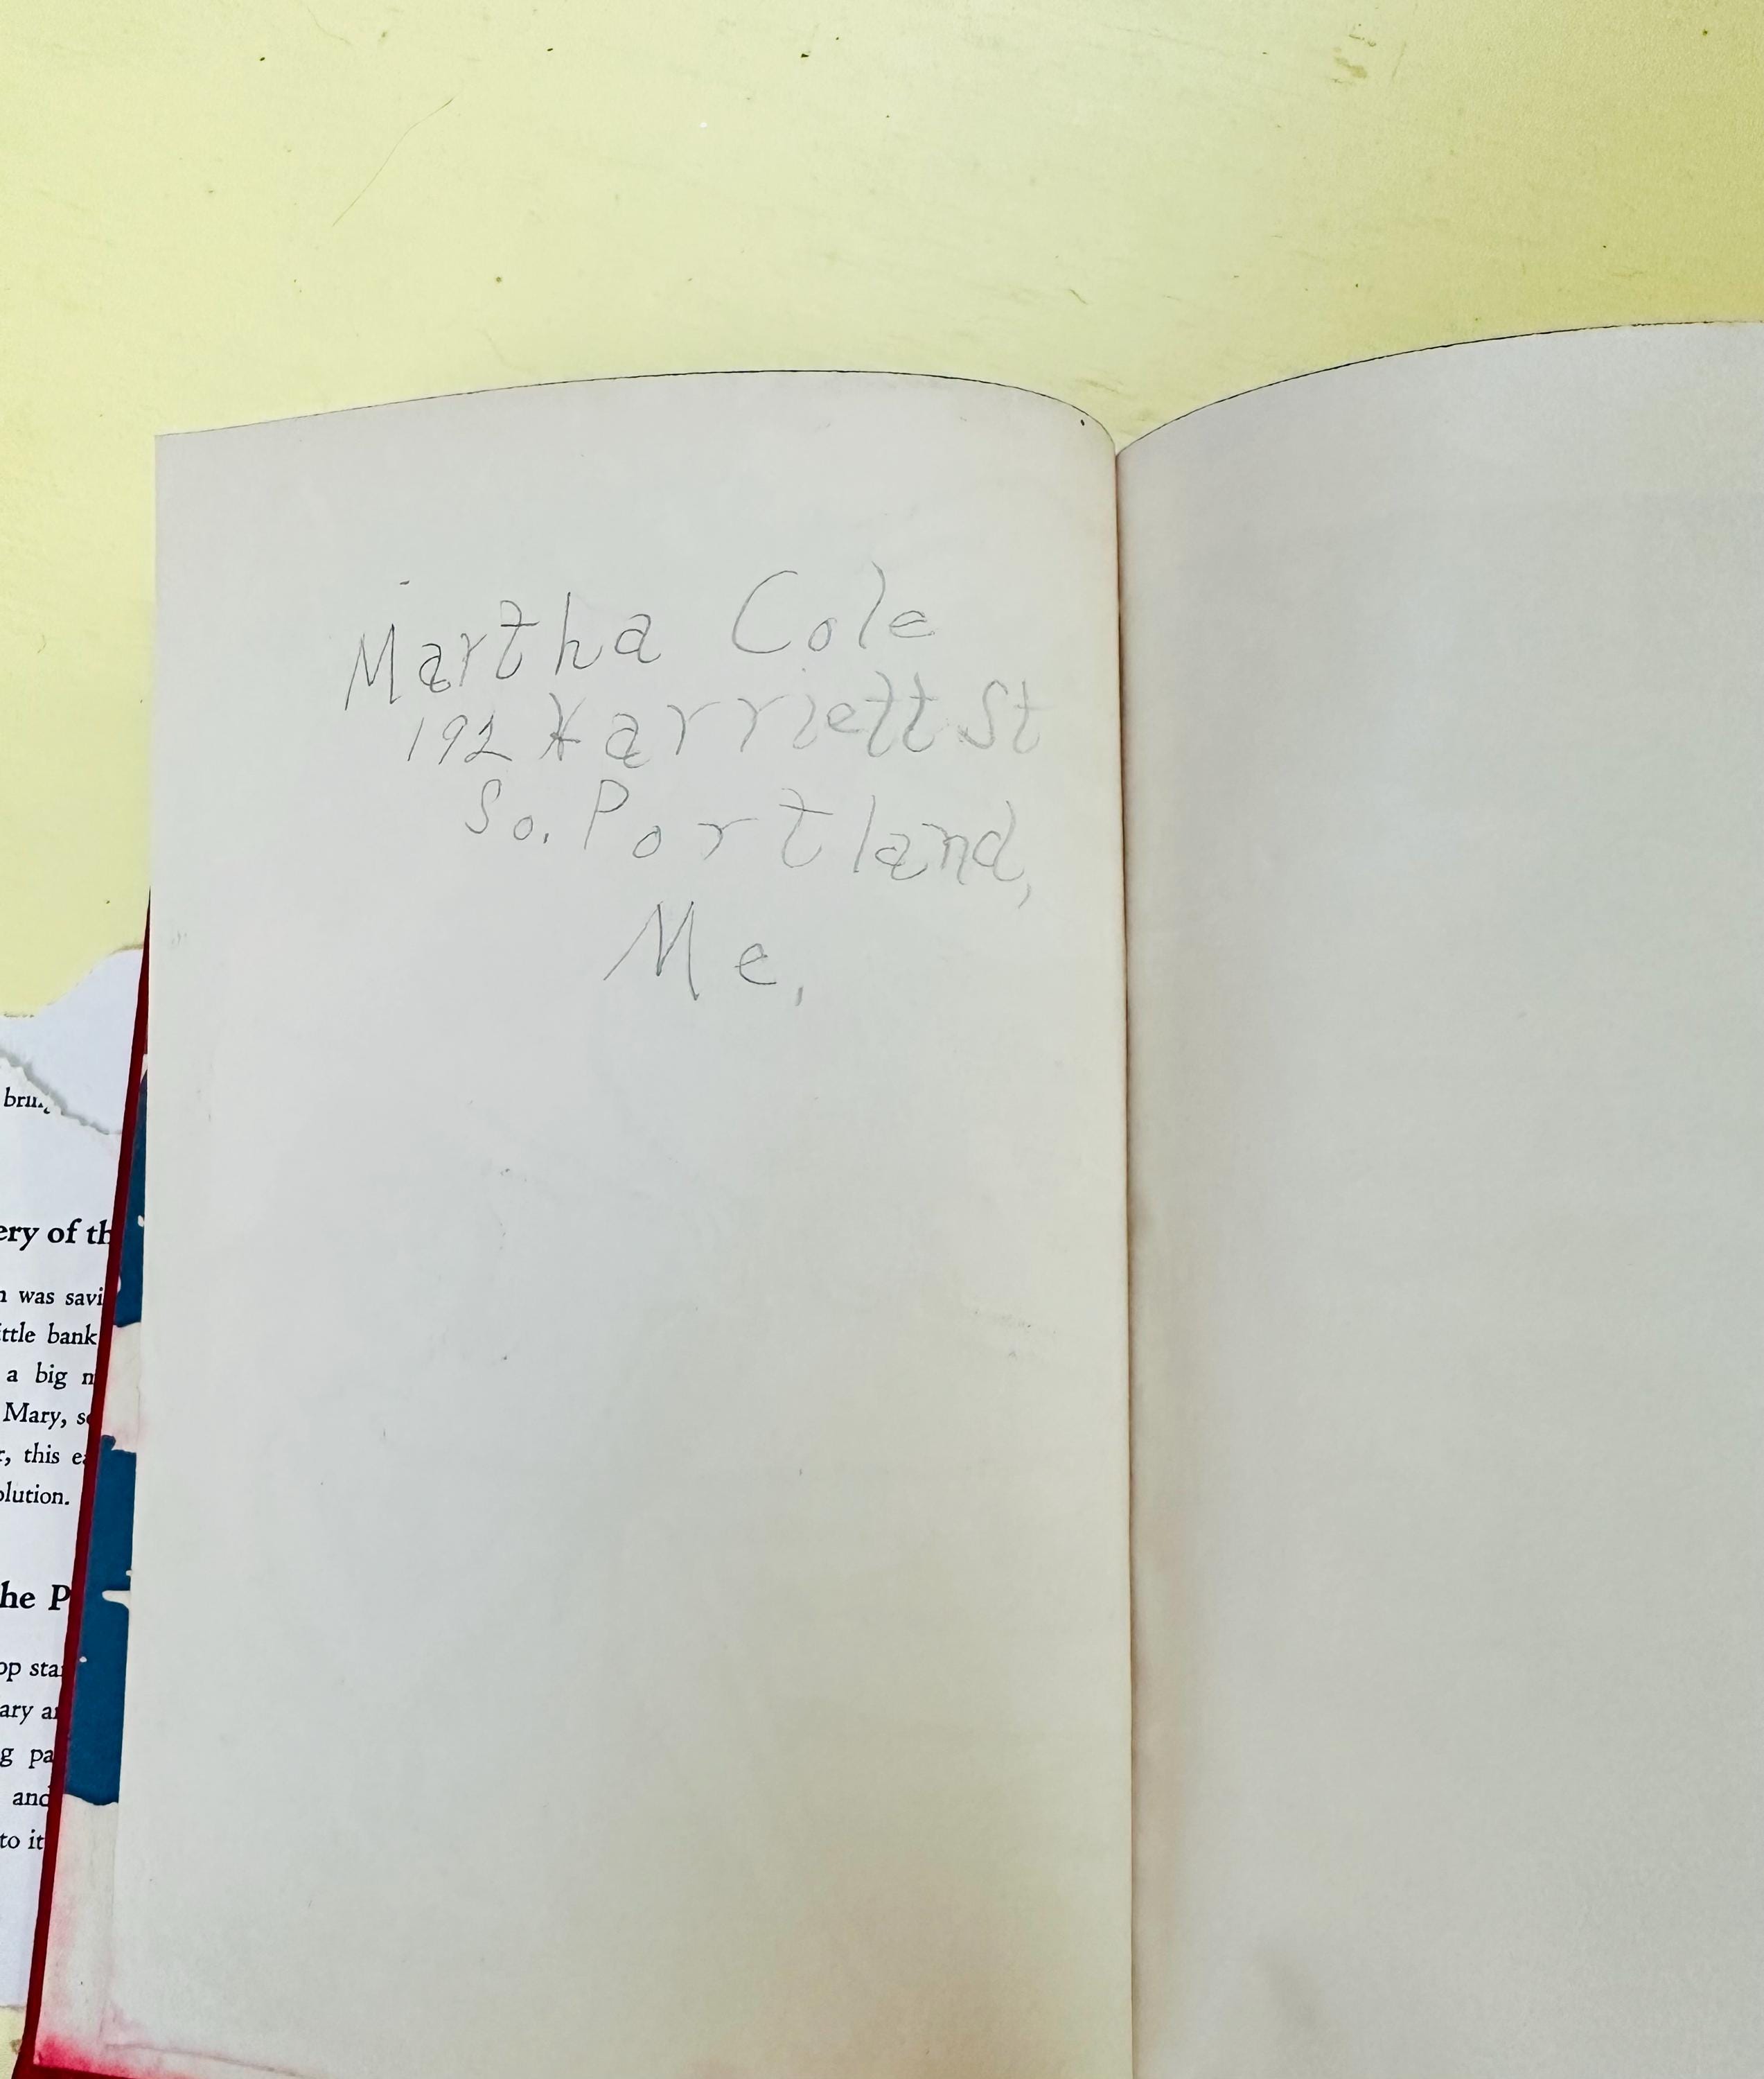 Martha Cole
192 Harriett St
So. Portland,
Me,
ery of th
was savi
ttle bank
a big
Mary,
this
olution.
he P
op sta
ary
g pa
and
to it